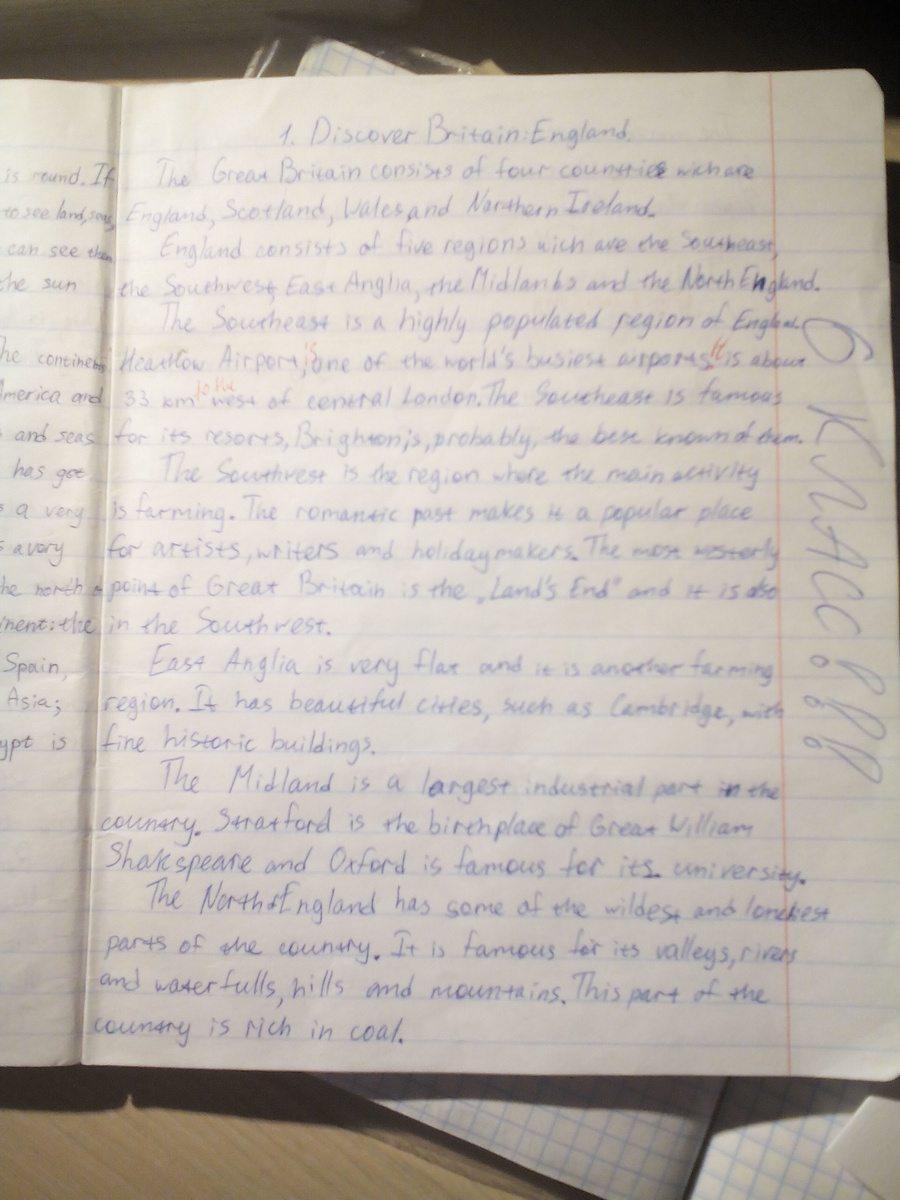 is round. If
to see land, seas,
can see them
the sun
The continents
America and
and seas
has got
a very
a very
the north
inent: the
Spain,
Asia;
ypt is
1. Discover Britain: England.
The Great Britain consists of four countries wich are
England, Scotland, Wales, and Northern Ireland.
England consists of five regions wich are the Southeast,
the Southwest, East Anglia, the Midlands and the North England.
The Southeast is a highly populated region of England.
Heathow Airport, is one of the world's busiest airports. It is about
33 km to the west of central London. The Southeast is famous
for its resorts, Brighton, is, probably, the best known of them.
The Southwest is the region where the main activity
is farming. The romantic past makes it a popular place
for artists, writers and holidaymakers. The most westerly
point of Great Britain is the „Land's End" and it is also
in the Southwest.
East Anglia is very flat and it is another farming
region. It has beautiful cities, such as Cambridge, with
fine historic buildings.
The Midland is a largest industrial part in the
country. Stratford is the birthplace of Great William
Shakspeare and Oxford is famous for its university.
The North of England has some of the wildest and loneliest
parts of the country. It is famous for its valleys, rivers
and waterfulls, hills and mountains. This part of the
country is rich in coal.
6 КЛАСС!!!